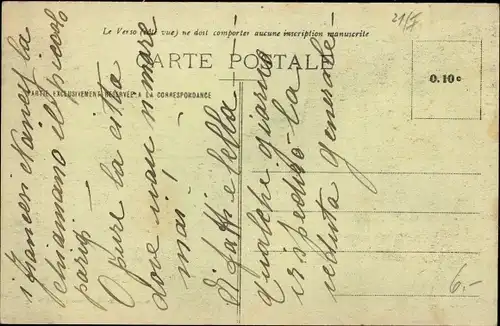 Le Verso (côté vue) ne doit comporter aucune inscription manuscrite
CARTE POSTALE
PARTIE EXCLUSIVEMENT RÉSERVÉE A LA CORRESPONDANCE
0.10 c
6.-
i francesi Nancy la
chiamano il piccolo
parigi -
Oppure la città
dove non muore
mai!
Difatti è bella -
qualche giorno
vi spedirò la
veduta generale